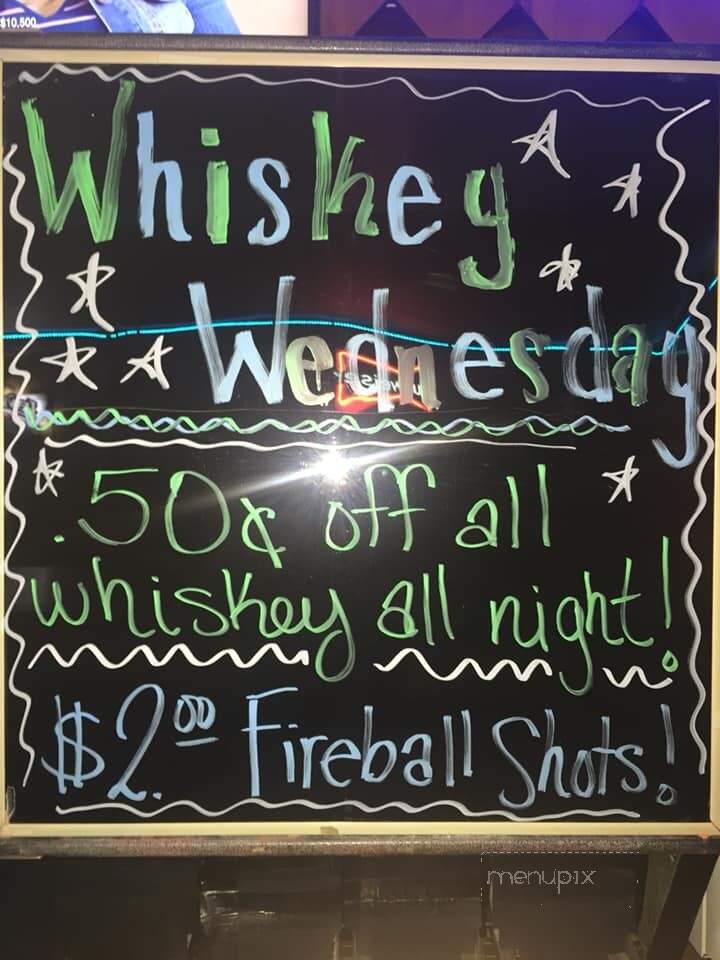 $10,500
Whiskey
Wednesday
.50¢ off all
whiskey all night!
$2.00 Fireball Shots!
menupix